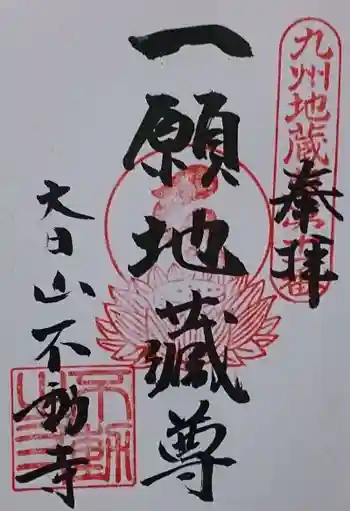 九州地蔵
奉拝
一願地蔵尊
大日山不動寺